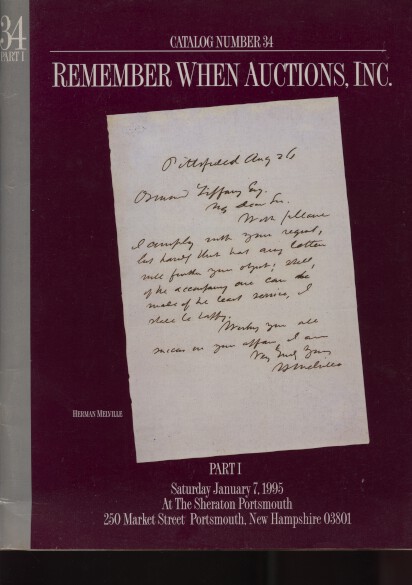 34
PART I
CATALOG NUMBER 34
REMEMBER WHEN AUCTIONS, INC.
Pittsfield Aug 26
Osmond Tiffany Esq.
My dear Sir.
With pleasure
I comply with your request,
but hardly that any letter
will further your object; still,
if the accompanying one can be
made of the least service, I
shall be happy.
Wishing you all
success in your affair, I am
Very Truly Yours
H Melville
HERMAN MELVILLE
PART I
Saturday January 7, 1995
At The Sheraton Portsmouth
250 Market Street Portsmouth, New Hampshire 03801